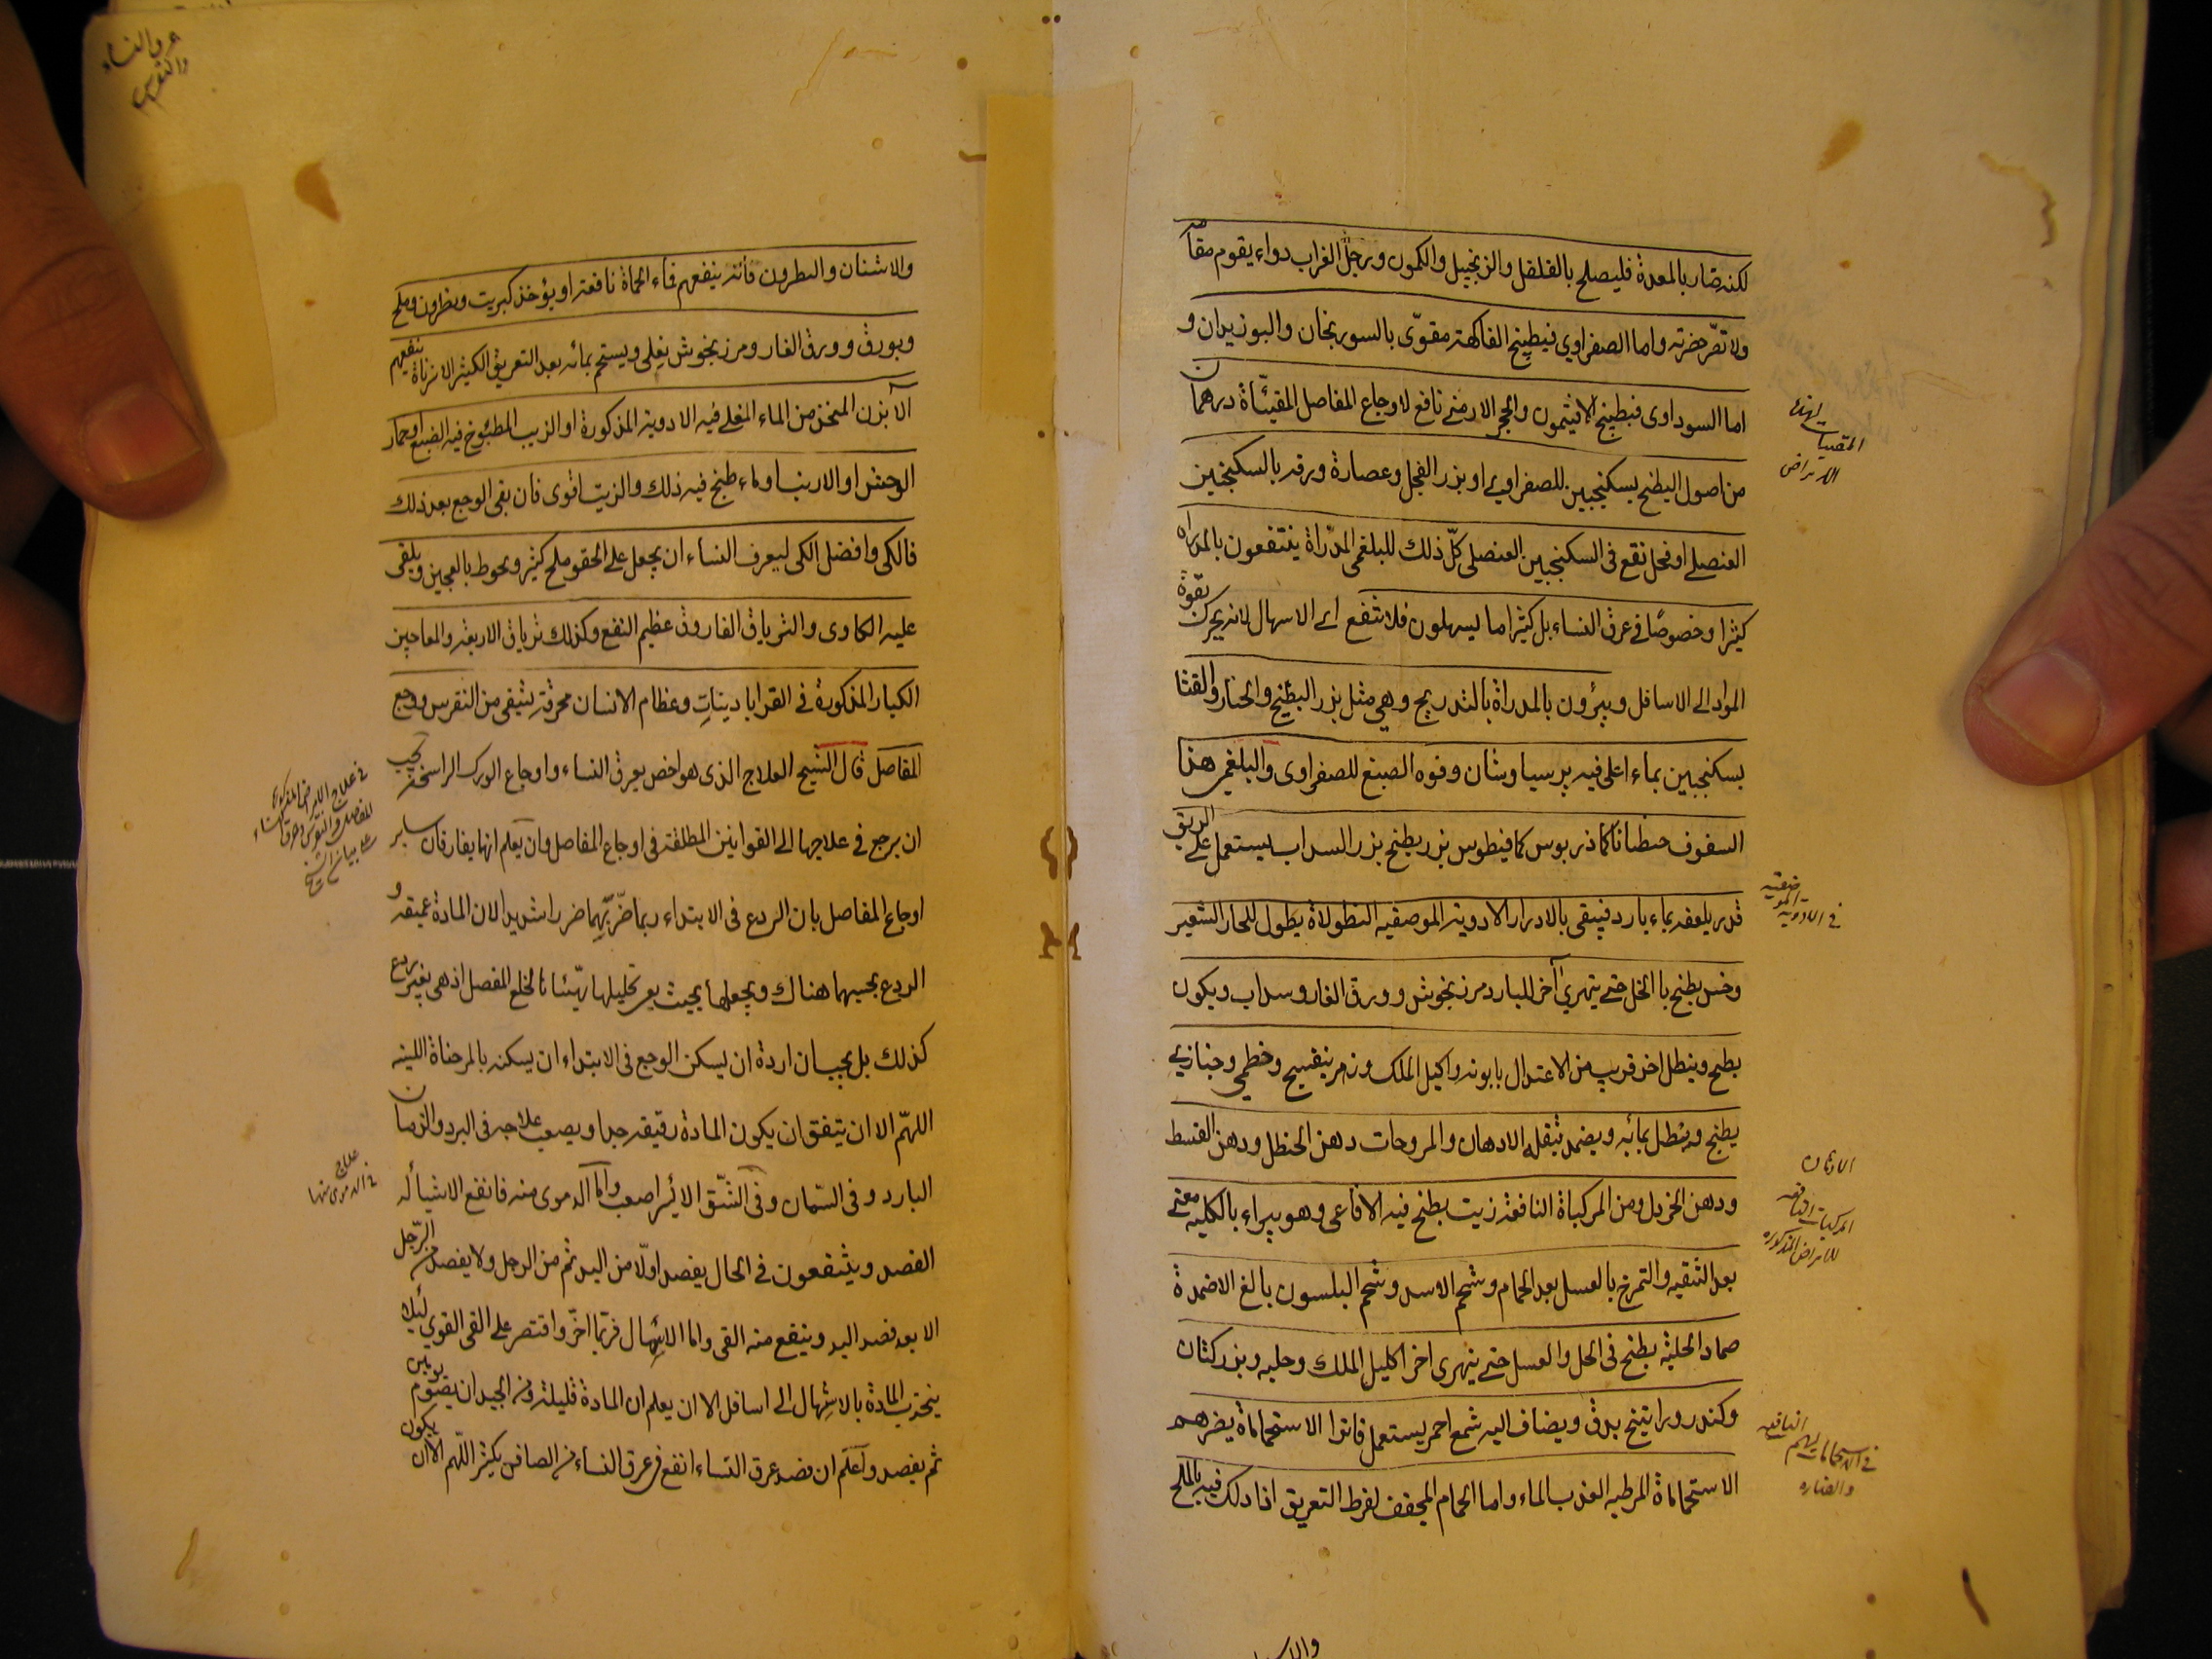 لكنه ضار بالمعدة فليصلح بالفلفل والزنجبيل والكمون ورجل الغراب دواء يقوم مقامه
ولا تضر مضرته واما الصفراوي فبطبيخ الفاكهة مقوّى بالسورنجان والبوزيدان و
اما السوداوى فبطبيخ الافيتمون والحجر الارمنى نافع لاوجاع المفاصل المقيّئاة درهمان
من اصول البطيخ بسكنجبين للصفراوى او بزر الفجل وعصارة ورقه بالسكنجبين
العنصلى او فجل نقع فى السكنجبين العنصلى كلّ ذلك للبلغمى المدرّاة ينتفعون بالمدراه
كثيرا وخصوصًا فى عرق النساء بل كثيرا ما يسهلون فلا تنفع اى الاسهال لانه يحرك بقوة
المواد الى الاسافل ويبرؤن بالمدراة بالتدريج وهى مثل بزر البطيخ والخيار والقثا
بسكنجبين بماء اغلى فيه برسياوشان وفوه الصبغ للصفراوى والبلغمى هذا
السفوف جنطيانا كماذريوس كمافيطوس بزر بطيخ بزر السداب يستعمل على الريق
قدر ملعقه بماء بارد فينقى بالادرار الادوية الموضعيه النطولاة نطول للحار الشعير
وخس يطبخ بالخل حتى يتهرى آخر للبارد مرزنجوش وورق الغار وسداب ويكون
يطبخ وينطل اخر قريب من الاعتدال بابونه واكليل الملك وزهر بنفسج وخطمى وخبازى
يطبخ وينطل بمائه ويضمد بثفله الادهان والمروحات دهن الحنظل ودهن القسط
ودهن الخردل ومن المركباة النافعة زيت يطبخ فيه الافاعى وهو يبراء بالكليه معنى
بعد التنقيه والتمرخ بالعسل بعد الحمام وشحم الاسد وشحم البلسون بالغ الاضمدة
ضماد الحلبة يطبخ فى الخل والعسل حتى يتهرى اخر اكليل الملك وحلبه وبزر كتان
وكندر وراتينج يدق ويضاف اليه شمع احمر يستعمل فاترا الاستحماماة يضرهم
الاستحماماة المرطبه العذب الماء واما الحمام المجفف لفرط التعريق اذا دلك فيه بالملح
المقيئات
الامراض
فى الادوية الموضعيه
الادهان
المركبات النافعه
للامراض المذكوره
فى الاستحمامات النافعه
والضاره
عرق النساء
والنقرس
والاشنان والنطرون فانه ينفعهم فماء الحماة نافعة او يؤخذ كبريت ونطرون وملح
وبورق وورق الغار ومرزنجوش يغلى ويستحم بمائه بعد التعريق الكثير الابزناة ينفعهم
الآبزن المتخذ من الماء المغلى فيه الادوية المذكورة او الزيت المطبوخ فيه الضبع او حمار
الوحش او الارنب او ماء طبخ فيه ذلك والزيت اقوى فان بقى الوجع بعد ذلك
فالكى وافضل الكى لعرق النساء ان يجعل على الحقو ملح كثير ويحوط بالعجين ويلقى
عليه الكاوى والترياق الفاروق عظيم النفع وكذلك ترياق الاربعة والمعاجين
الكبار المذكورة فى القراباديناتِ وعظام الانسان محرقة يشفى من النقرس ووجع
المفاصل قال الشيخ العلاج الذى هو اخص بعرق النساء واوجاع الورك الراسخة يجب
ان يرجع فى علاجها الى القوانين المطلقة فى اوجاع المفاصل وان يعلم انها يفارقان ساير
اوجاع المفاصل بان الردع فى الابتداء ربما ضرّ بهما ضررا شديدا لان المادة عميقة و
الردع يحبسها هناك ويجعلها بحيث يعسر تحليلها تهيّئا نالخلع المفصل اذ هى بغير ردع
كذلك بل يجب ان اردة ان يسكن الوجع فى الابتداء ان يسكنه بالمرخناة اللينه
اللهّم الا ان يتفق ان يكون المادة رقيقة جدا ويصعب علاجه فى البرد والزمان
البارد وفى السّمان وفى الشقّ الايسر اصعب واما الدموى منه فانفع الاشيأله
الفصد وينتفعون فى الحال يفصد اولا من اليد ثم من الرجل ولا يفصد من الرّجل
الا بعد فصد اليد وينفع منه القى واما الاسهال فربما اخّر واقتصر على القى القوى لئلا
ينجذب المادة بالاسهال الى اسافل الا ان يعلم ان المادة قليلة ومن الجيد ان يصوم يومين
ثم يفصد وآعلم ان فصد عرق النساء انفع فى عرق النساء من الصافن بكثير اللّهم الا ان يكون
فى علاج الامراض المذكوره
المفاصل والنقرس وعرق النساء
على بيان الشيخ
علاج
فى الدموى منها